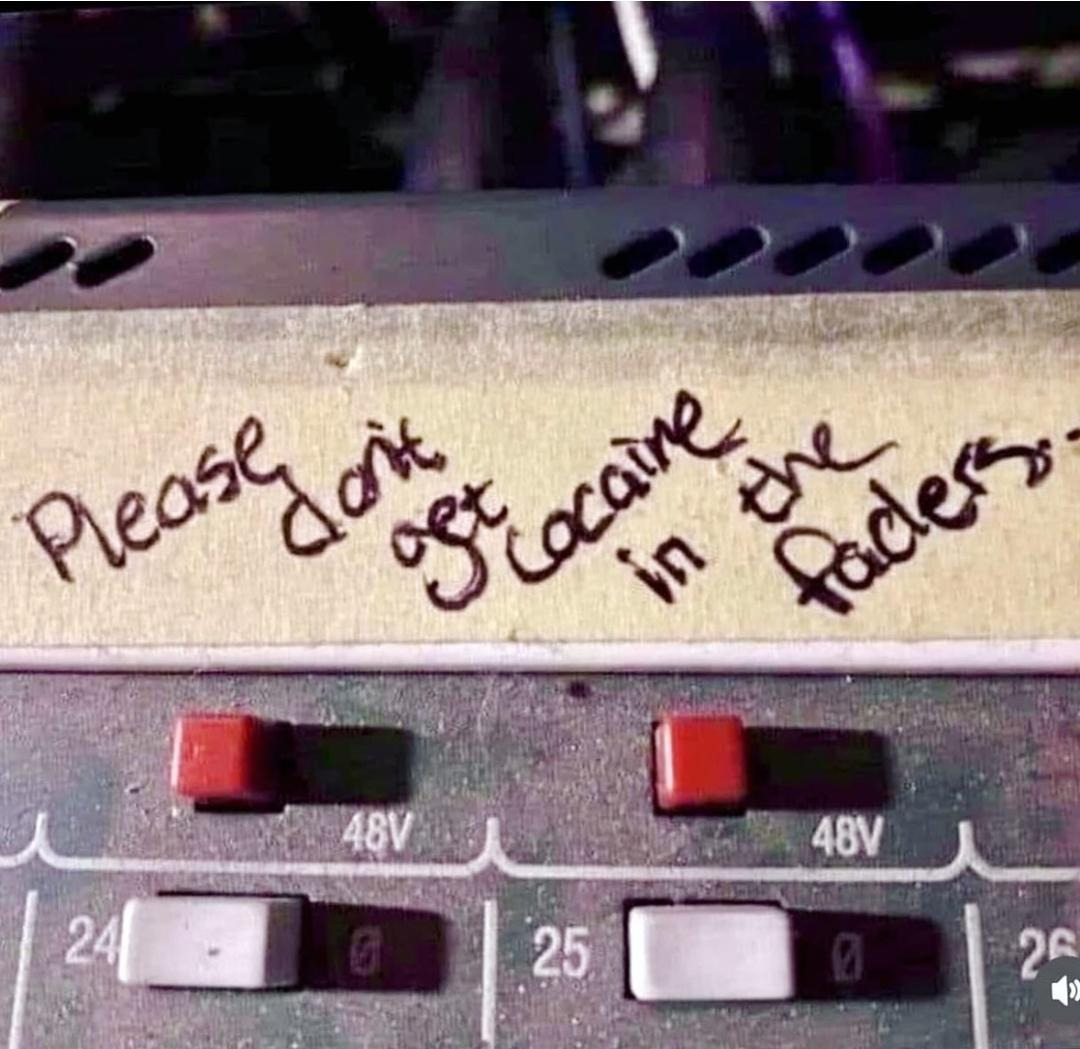 Please don't get cocaine in the faders.
48V 48V
24 Ø 25 Ø 26